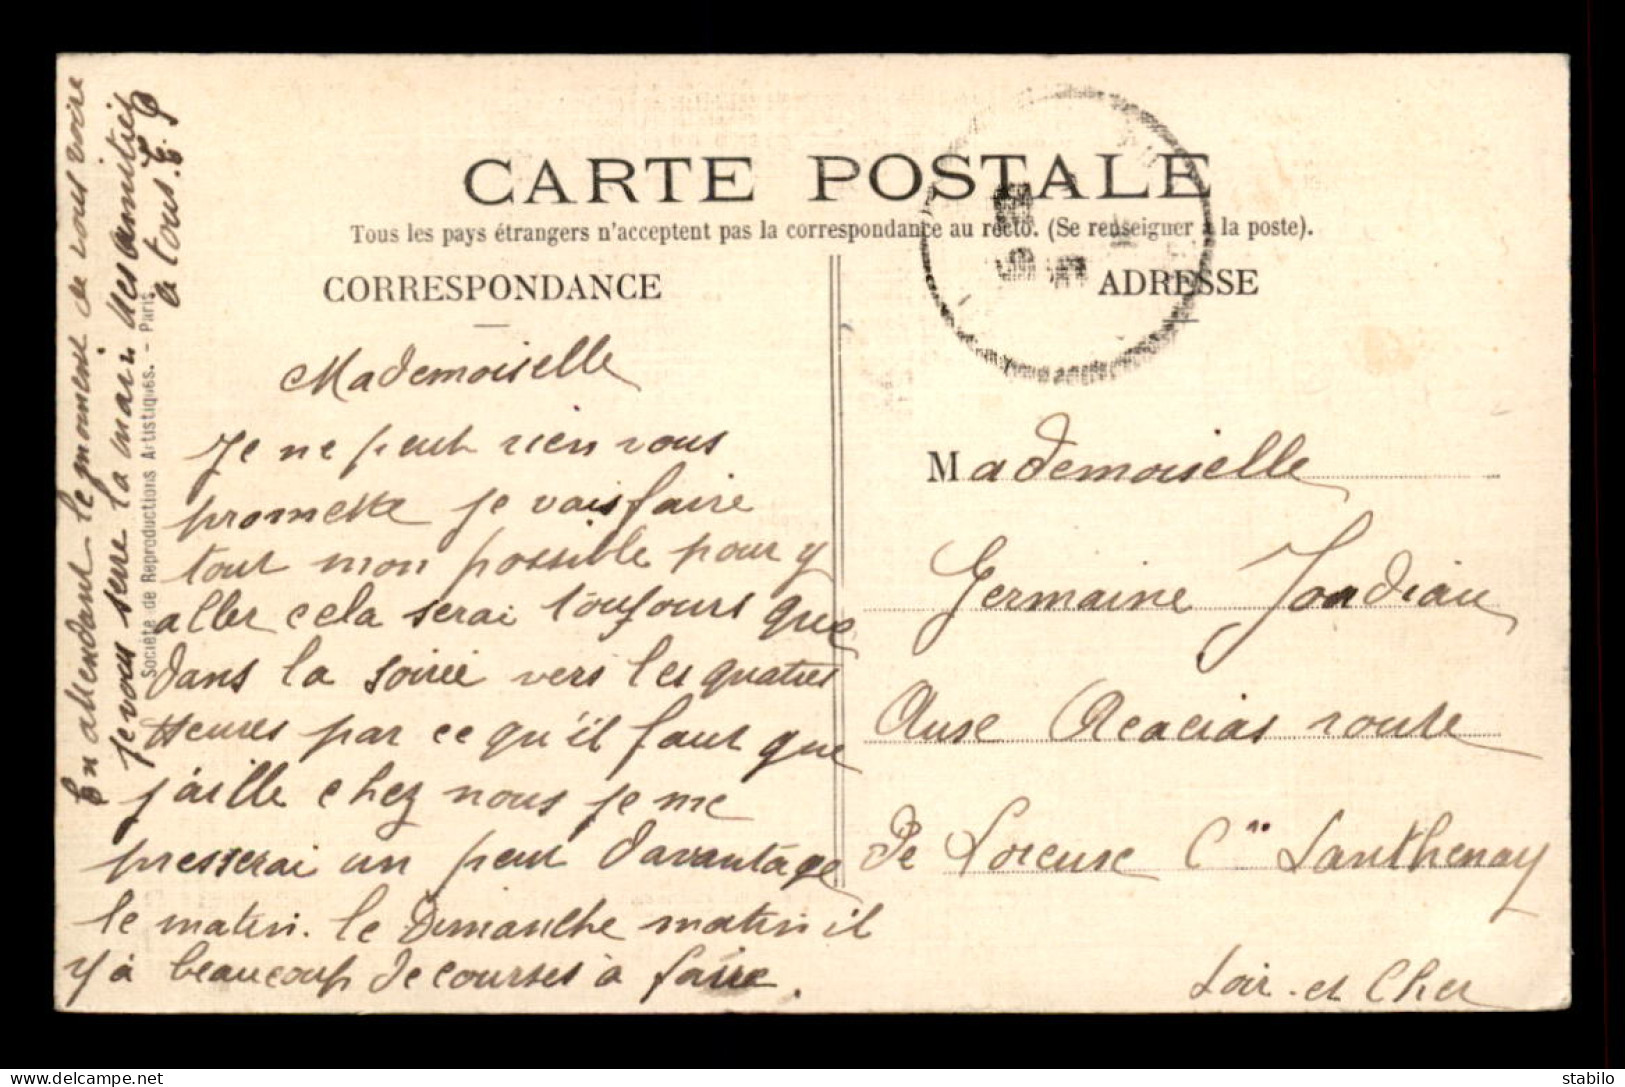 CARTE POSTALE
Tous les pays étrangers n'acceptent pas la correspondance au recto. (Se renseigner à la poste).
CORRESPONDANCE
Mademoiselle
Je ne peut rien vous
promettre je vais faire
tout mon possible pour y
aller cela serai toujours que
dans la soirée vers les quatres
Heures par ce qu'il faut que
j'aille chez nous je me
presserai un peut davantage
le matin. le Dimanche matin il
y à beaucoup de courses à faire.
En attendant le moment de vous voire
je vous serre la main Mes amitiés
à tous. E. P
Société de Reproductions Artistiques. - Paris
ADRESSE
Mademoiselle
Germaine
Ause Acacias route
De Loreuse Cne Santhenay
Loir-et Cher
stabilo
delcampe.net